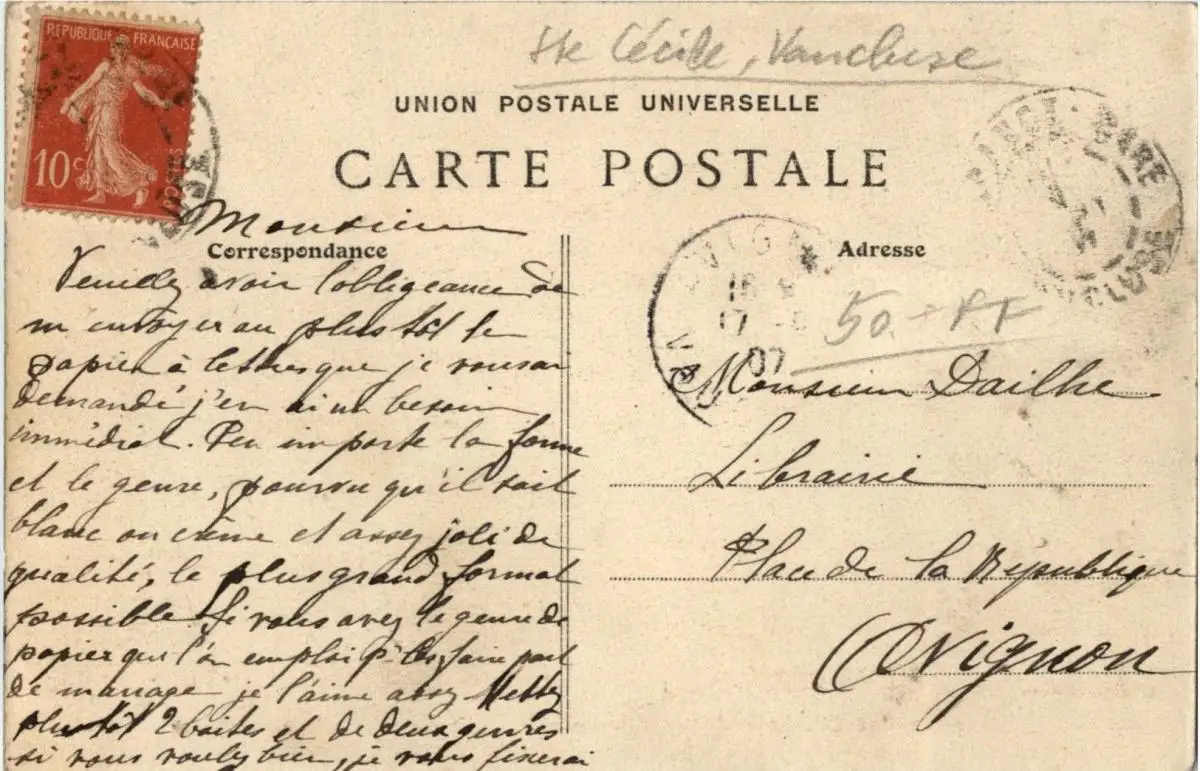 REPUBLIQUE FRANÇAISE
10c
POSTES
Ste Cécile, Vaucluse
UNION POSTALE UNIVERSELLE
CARTE POSTALE
Correspondance
Monsieur
Veuillez avoir l'obligeance de
m'envoyer au plus tôt le
papier à lettres que je vous ai
demandé j'en ai un besoin
immédiat. Peu importe la forme
et le genre, pourvu qu'il soit
blanc ou crème et assez joli de
qualité, le plus grand format
possible Si vous avez le genre de
papier que l'on emploi pr les faire part
de mariage je l'aime assez Mettez
plutôt 2 boites et de deux genres
si vous voulez bien, je vous fixerai
Adresse
GARE
CLUSE
VIGN
17
07
50
Monsieur Dailhe
Librairie
Place de la République
Avignon